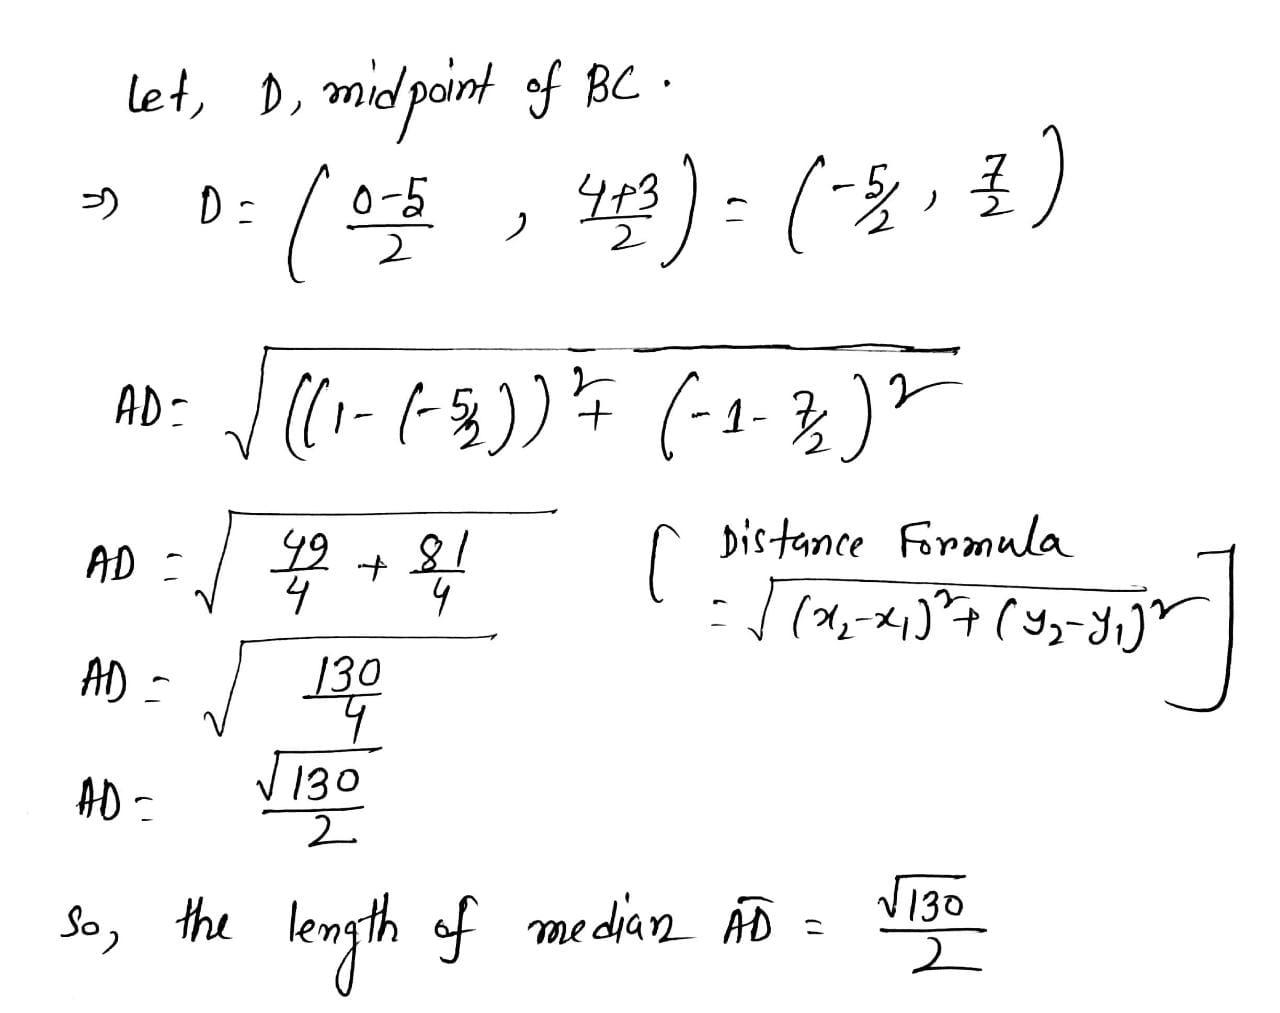 Let, D, midpoint of BC.
⇒ D = ( (0-5)/2 , (4+3)/2 ) = ( -5/2 , 7/2 )
AD = √( ((1-(-5/2))² + (-1-7/2)² )
AD = √( 49/4 + 81/4 )
[ Distance Formula
= √( (x₂-x₁)² + (y₂-y₁)² ) ]
AD = √( 130/4 )
AD = √130/2
So, the length of median A̅D̅ = √130/2